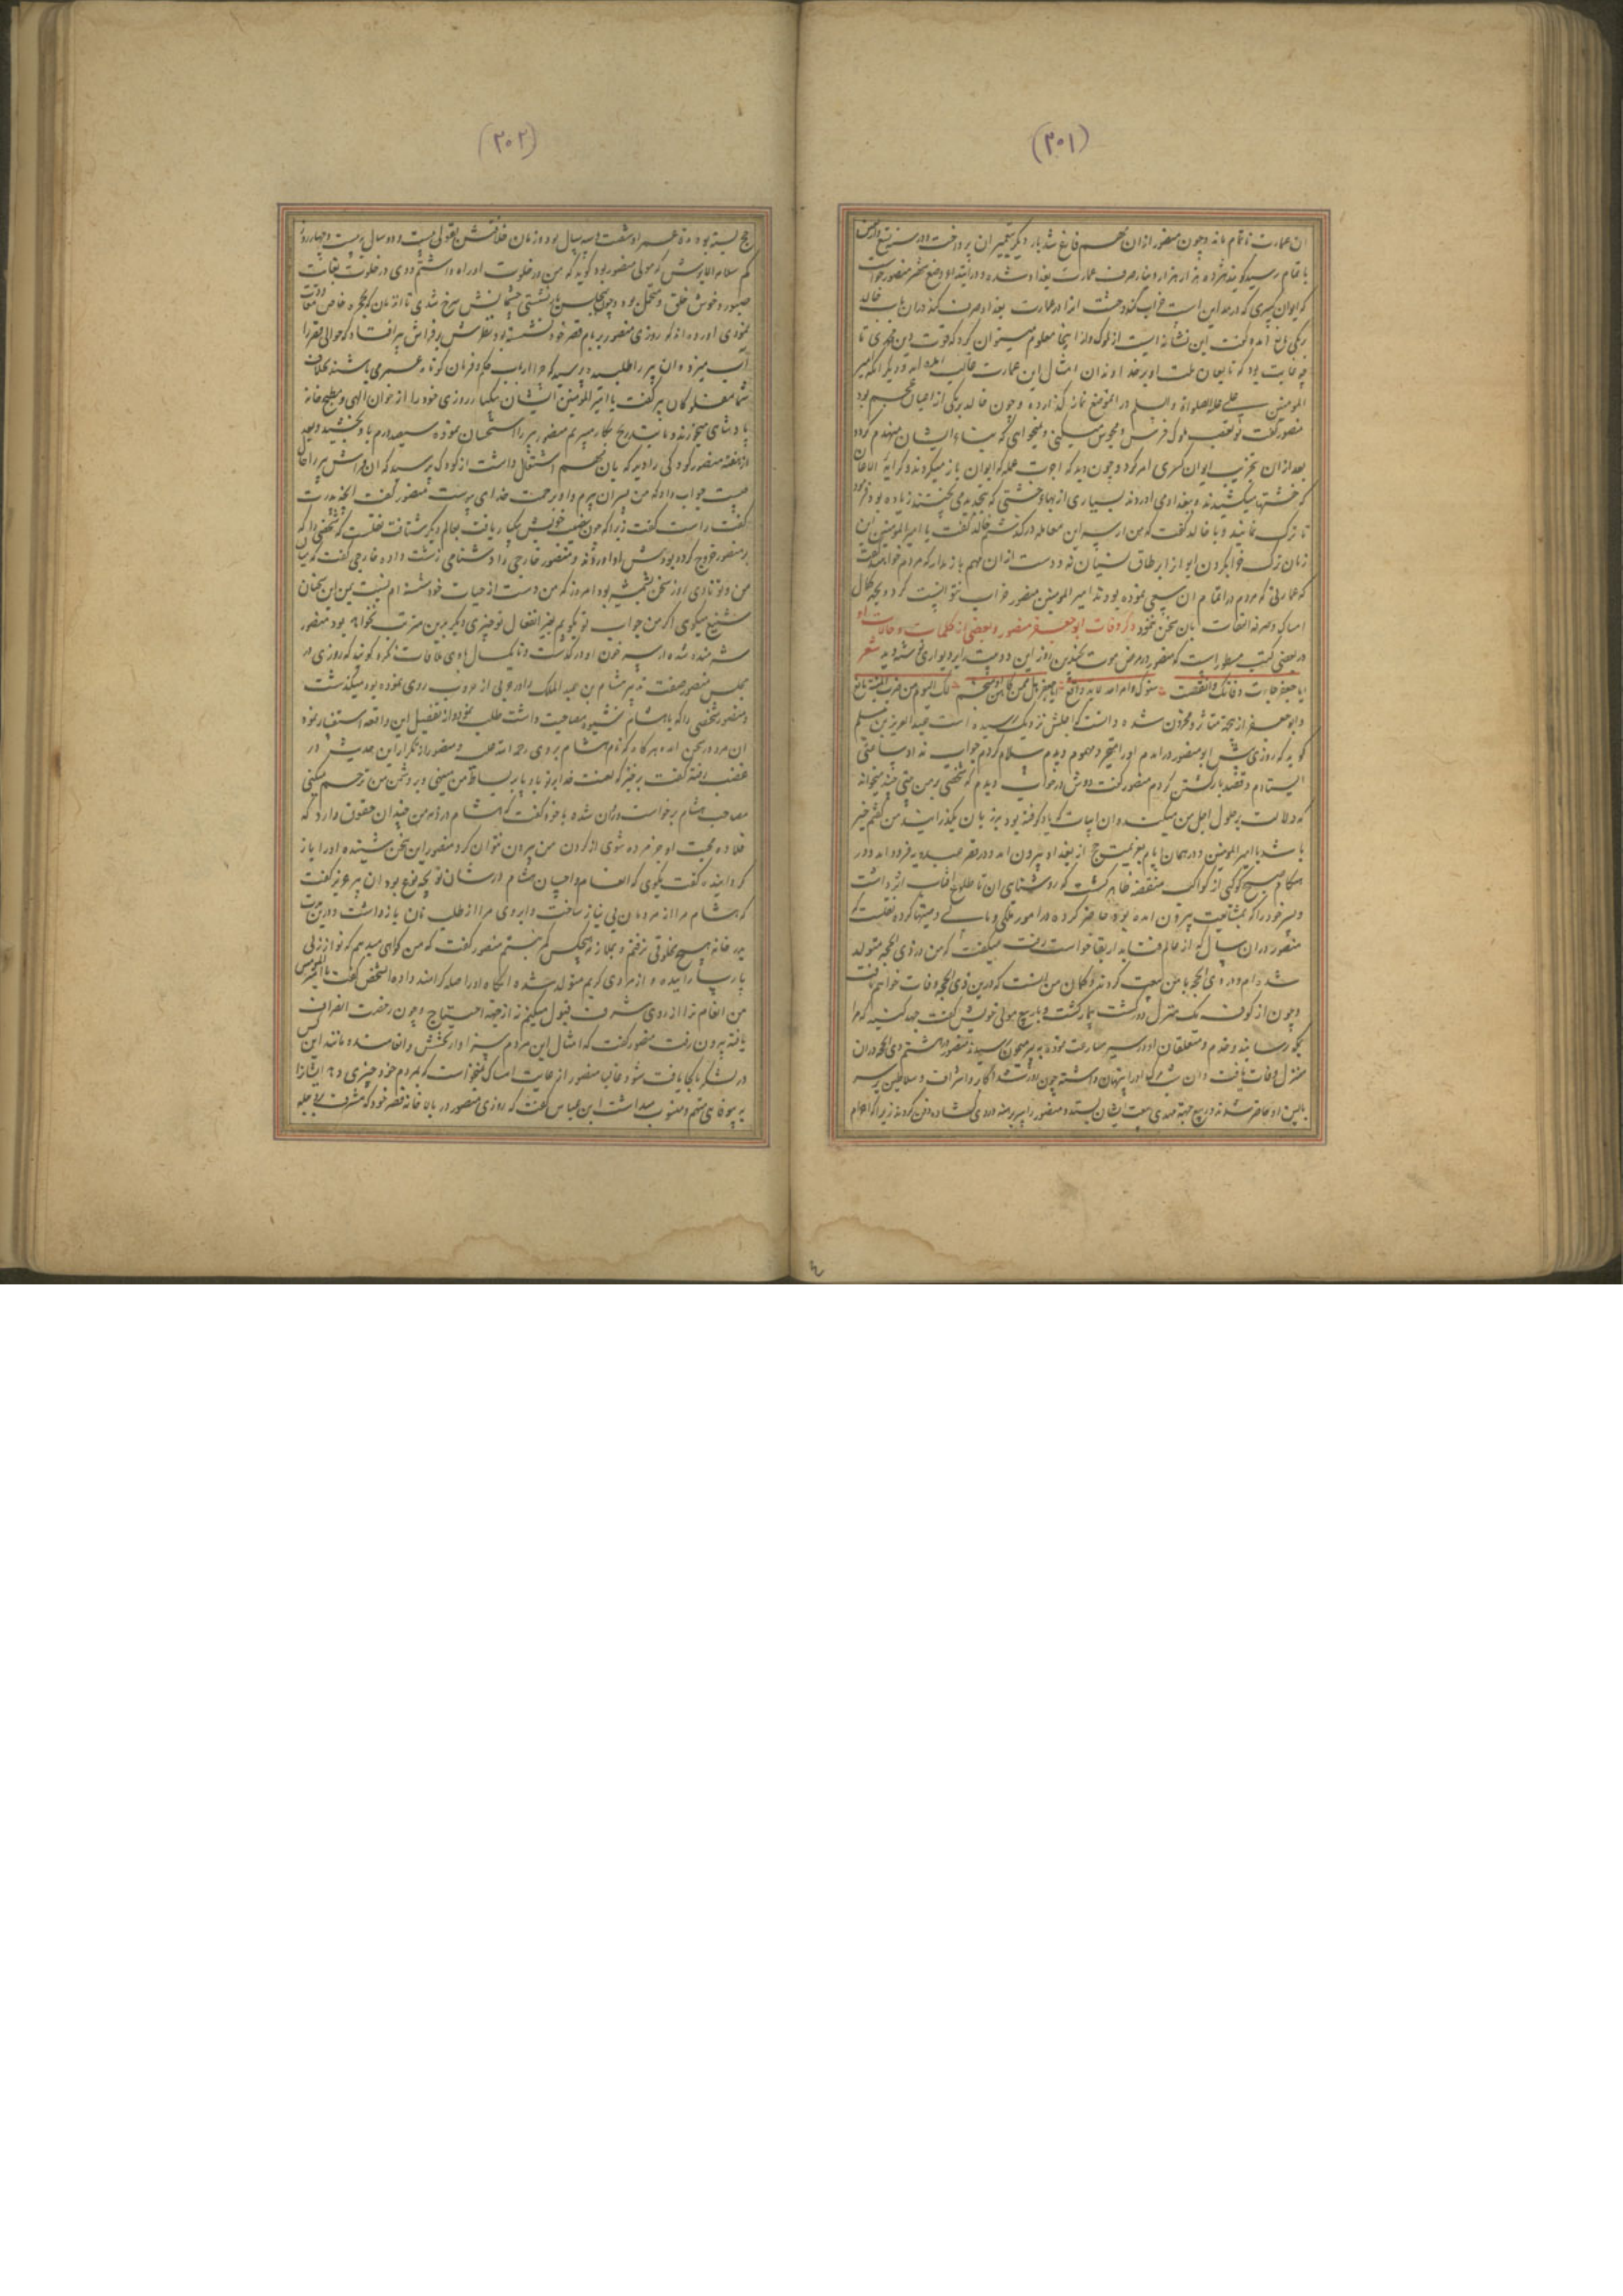 (۳۰۱)
ان عمارت ناتمام ماند و چون منصور از ان مهم فارغ شد بار دیگر بتعمیر ان پرداخت و در سنه
باتمام رسید گویند هژده هزار هزار دینار صرف عمارت بغداد شده و در ابتداء وضع شهر منصور خواست
که ایوان کسری که در مداین است خراب کند و خشت انرا در عمارت بغداد صرف کند در ان باب با خالد
برمکی امده گفت این نشانه ایست از ملوک و از اینجا معلوم میتوان کرد که قوت دین محمدی تا
چه غایت بود که تابعان ملت او بر خداوندان امثال این عمارت غالب امده اند و دیگر انکه امیر
المومنین علی علیه الصلوة و السلام در ان موضع نماز گذارده و چون خالد برمکی از اعیان عجم بود
منصور گفت تو تعصب ملوک فرس و مجوس میکنی و نمیخواهی که بناء ایشان منهدم گردد
بعد از ان بتخریب ایوان کسری امر کرد و چون دید که اجرت عمله که ایوان باز میکردند و کرایه
که خشتها میکشیدند و ببغداد می اوردند بسیاری از بهاء خشتی که بتجدید می پختند زیاده بود فرمود
تا ترک نمایند و با خالد گفت که من از سر این معامله در گذشتم خالد گفت یا امیر المومنین این
زمان ترک خراب کردن ایوان از ابر طاق نسیان نه و دست از ان مهم باز مدار که مردم خواهند گفت
که عمارتی که مردم در اتمام ان سعی نموده بودند امیر المومنین منصور خراب نتوانست کرد و بجهة کمال
امساک و صرفه التفات بان سخن ننمود ذکر وفات ابو جعفر منصور و بعضی از کلمات و حالات او
در بعضی کتب مسطور است که منصور در مرض موت بچندین روز این دو بیت بر دیواری نوشته دید شعر
ابا جعفر حانت وفاتک وانقضت سنوک وامر الله لابد واقع ابا جعفر هل کاهن او منجم لک الیوم من
و ابو جعفر ازین جهة متاثر و محزون شده دانست که اجلش نزدیک رسیده است عبد العزیز بن مسلم
گوید که روزی پیش ابو منصور در امدم او را متحیر و مهموم دیدم سلام کردم جواب نداد ساعتی
ایستادم و قصد بازگشتن کردم منصور گفت دوش در خواب دیدم که شخصی بر من بیتی چند میخواند
که دلالت بر حلول اجل من میکند و ان ابیات که یاد گرفته بود بر زبان بگذرانید من گفتم خیر
باشد یا امیر المومنین و در همان ایام بعزیمت حج از بغداد بیرون امد و در قصر عبدویه فرود امد و در
هنگام صبح کوکبی از کواکب منقضه ظاهر گشت که روشنای ان تا طلوع افتاب اثر داشت
و پسر خود را که بمشایعت بیرون امده بود حاضر کرده در امور ملکی و مالی وصیتها کرده نقلست که
منصور در ان سال که از عالم فنا بدار بقا خواست رفت میگفت که من در ذی الحجه متولد
شده ام و در ذی الحجه با من بیعت کردند و گمان من انست که در ین ذی الحجه وفات خواهم یافت
و چون از کوفه یک منزل در گذشت بیمار گشت و با ربیع مولی خویش گفت جهد کنید که مرا
بحرم رسانید و خدم و متعلقان او در سیر مسارعت نموده به بیر میمون رسیدند منصور در هشتم ذی الحجه در ان
منزل وفات یافت و ان شب مرگ او را پنهان داشته چون روز شد اکابر و اشراف و سلاطین بر سر
بالین او حاضر شدند و ربیع جهة مهدی بیعت ایشان بستد و منصور را سر برهنه و روی گشاده دفن کردند زیرا که احرام
(۳۰۲)
حج بسته بود مدة عمر او شصت و سه سال بود و زمان خلافتش بقولی بیست و دو سال بیست و چهار روز
کم سلام الابرش که مولی منصور بود گوید که من در خلوت او راه داشتم و وی در خلوت بغایت
صبور و خوش خلق و متحمل بود و چون بمجلس بار نشستی چشمانش سرخ شدی تا از مان که بحجره خاص معاودت
نمودی اورده اند که روزی منصور بر بام قصر خود نشسته بود نظرش بر فراش پیر افتاد که حوالی قصر را
اب میزد ان پیر را طلبیده پرسید که چرا ارباب حکم و فرمان کوتاه عمر می باشند بخلاف
شما مفلوکان پیر گفت یا امیر المومنین ایشان بیکبار روزی خود را از خوان الهی و مطبخ خانه
پادشاهی میخورند و ما بتدریج بکار میبریم منصور پیر را استحسان نموده سیصد درم باو بخشید و بعد
از هفته منصور کودکی را دید که بان مهم اشتغال داشت از کودک پرسید که ان فراش پیر را حال
چیست جواب داد که من پسر ان پیرم و او برحمت خدای پیوست منصور گفت انچه پدرت
گفت راست گفت زیرا که چون نصیب خویش بیکبار یافت بعالم دیگر شتافت نقلست که شخصی را که
بر منصور خروج کرده بود پیش او اوردند و منصور خارجی را دشنامی زشت داده خارجی گفت که میان
من و تو تا دی روز سخن بشمشیر بود امروز که من دست از حیات خود شسته ام نسبت بمن این سخنان
شنیع میگوی اگر من جواب تو بگویم بغیر انفعال تو چیزی دیگر برین مترتب نخواهد بود منصور
شرمنده شده از سر خون او در گذشت و تا یک سال با وی ملاقات نکرد گویند که روزی در
مجلس منصور صفت تدبیر هشام بن عبد الملک را در حربی از حروب روی نموده بود میگذشت
و منصور شخصی را که با هشام شیوه مصاحبت داشت طلب نمود و از تفصیل این واقعه استفسار نمود
ان مرد در سخن امده هر گاه که نام هشام بردی رحمه الله علیه و منصور از تکرار این حدیث در
غضب رفته گفت برخیز که لعنت خدا بر تو باد پا بر بساط من می نهی و بر دشمن من ترحم میکنی
مصاحب هشام برخاست و روان شده با خود گفت که هشام در ذمه من چندان حقوق دارد که
قلاده محبت او جز مرده شوی از گردن من بیرون نتوان کرد منصور این سخن شنیده او را باز
گردانیده گفت بگوی که انعام و احسان هشام در شان تو بچه نوع بود ان پیر عزیز گفت
که هشام مرا از مردمان بی نیاز ساخت و ابروی مرا از طلب نان باز داشت و درین مدت
بدر خانه هیچ مخلوقی نرفتم و بملازمت هیچکس کمر نبستم منصور گفت که من گواهی میدهم که تو از زنی
پارسا زاییده و از مردی کریم متولد شده انگاه او را صله گرامند داده ان شخص گفت یا امیر المومنین
من انعام ترا از روی شرف قبول میکنم نه از جهة احتیاج و چون رخصت انصراف
یافته بیرون رفت منصور گفت که امثال این مردم سزاوار بخشش و انعامند و مانند این کس
در لشکر ما کجا یافت شود غالبا منصور از غایت امساک نمیخواست که بمردم خود چیزی دهد ایشان را
به بیوفای متهم و منسوب میداشت ابن عباس گفت که روزی منصور در بالا خانه قصر خود که مشرف بر دجله